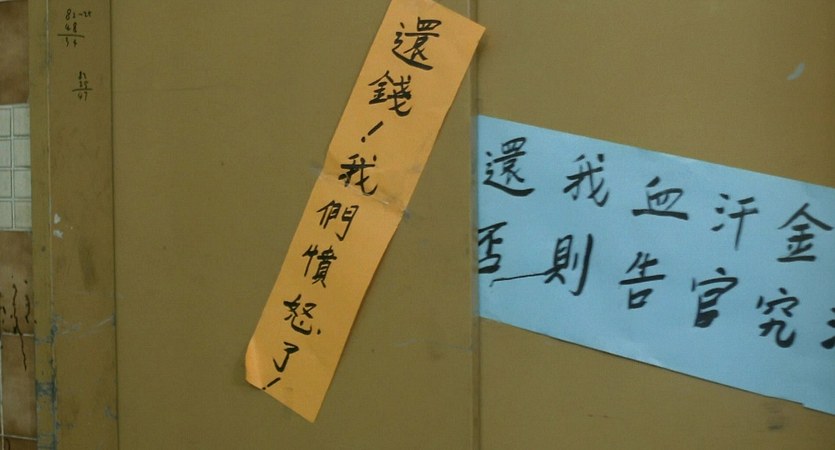 還錢！我們憤怒了！
還我血汗金
否則告官究